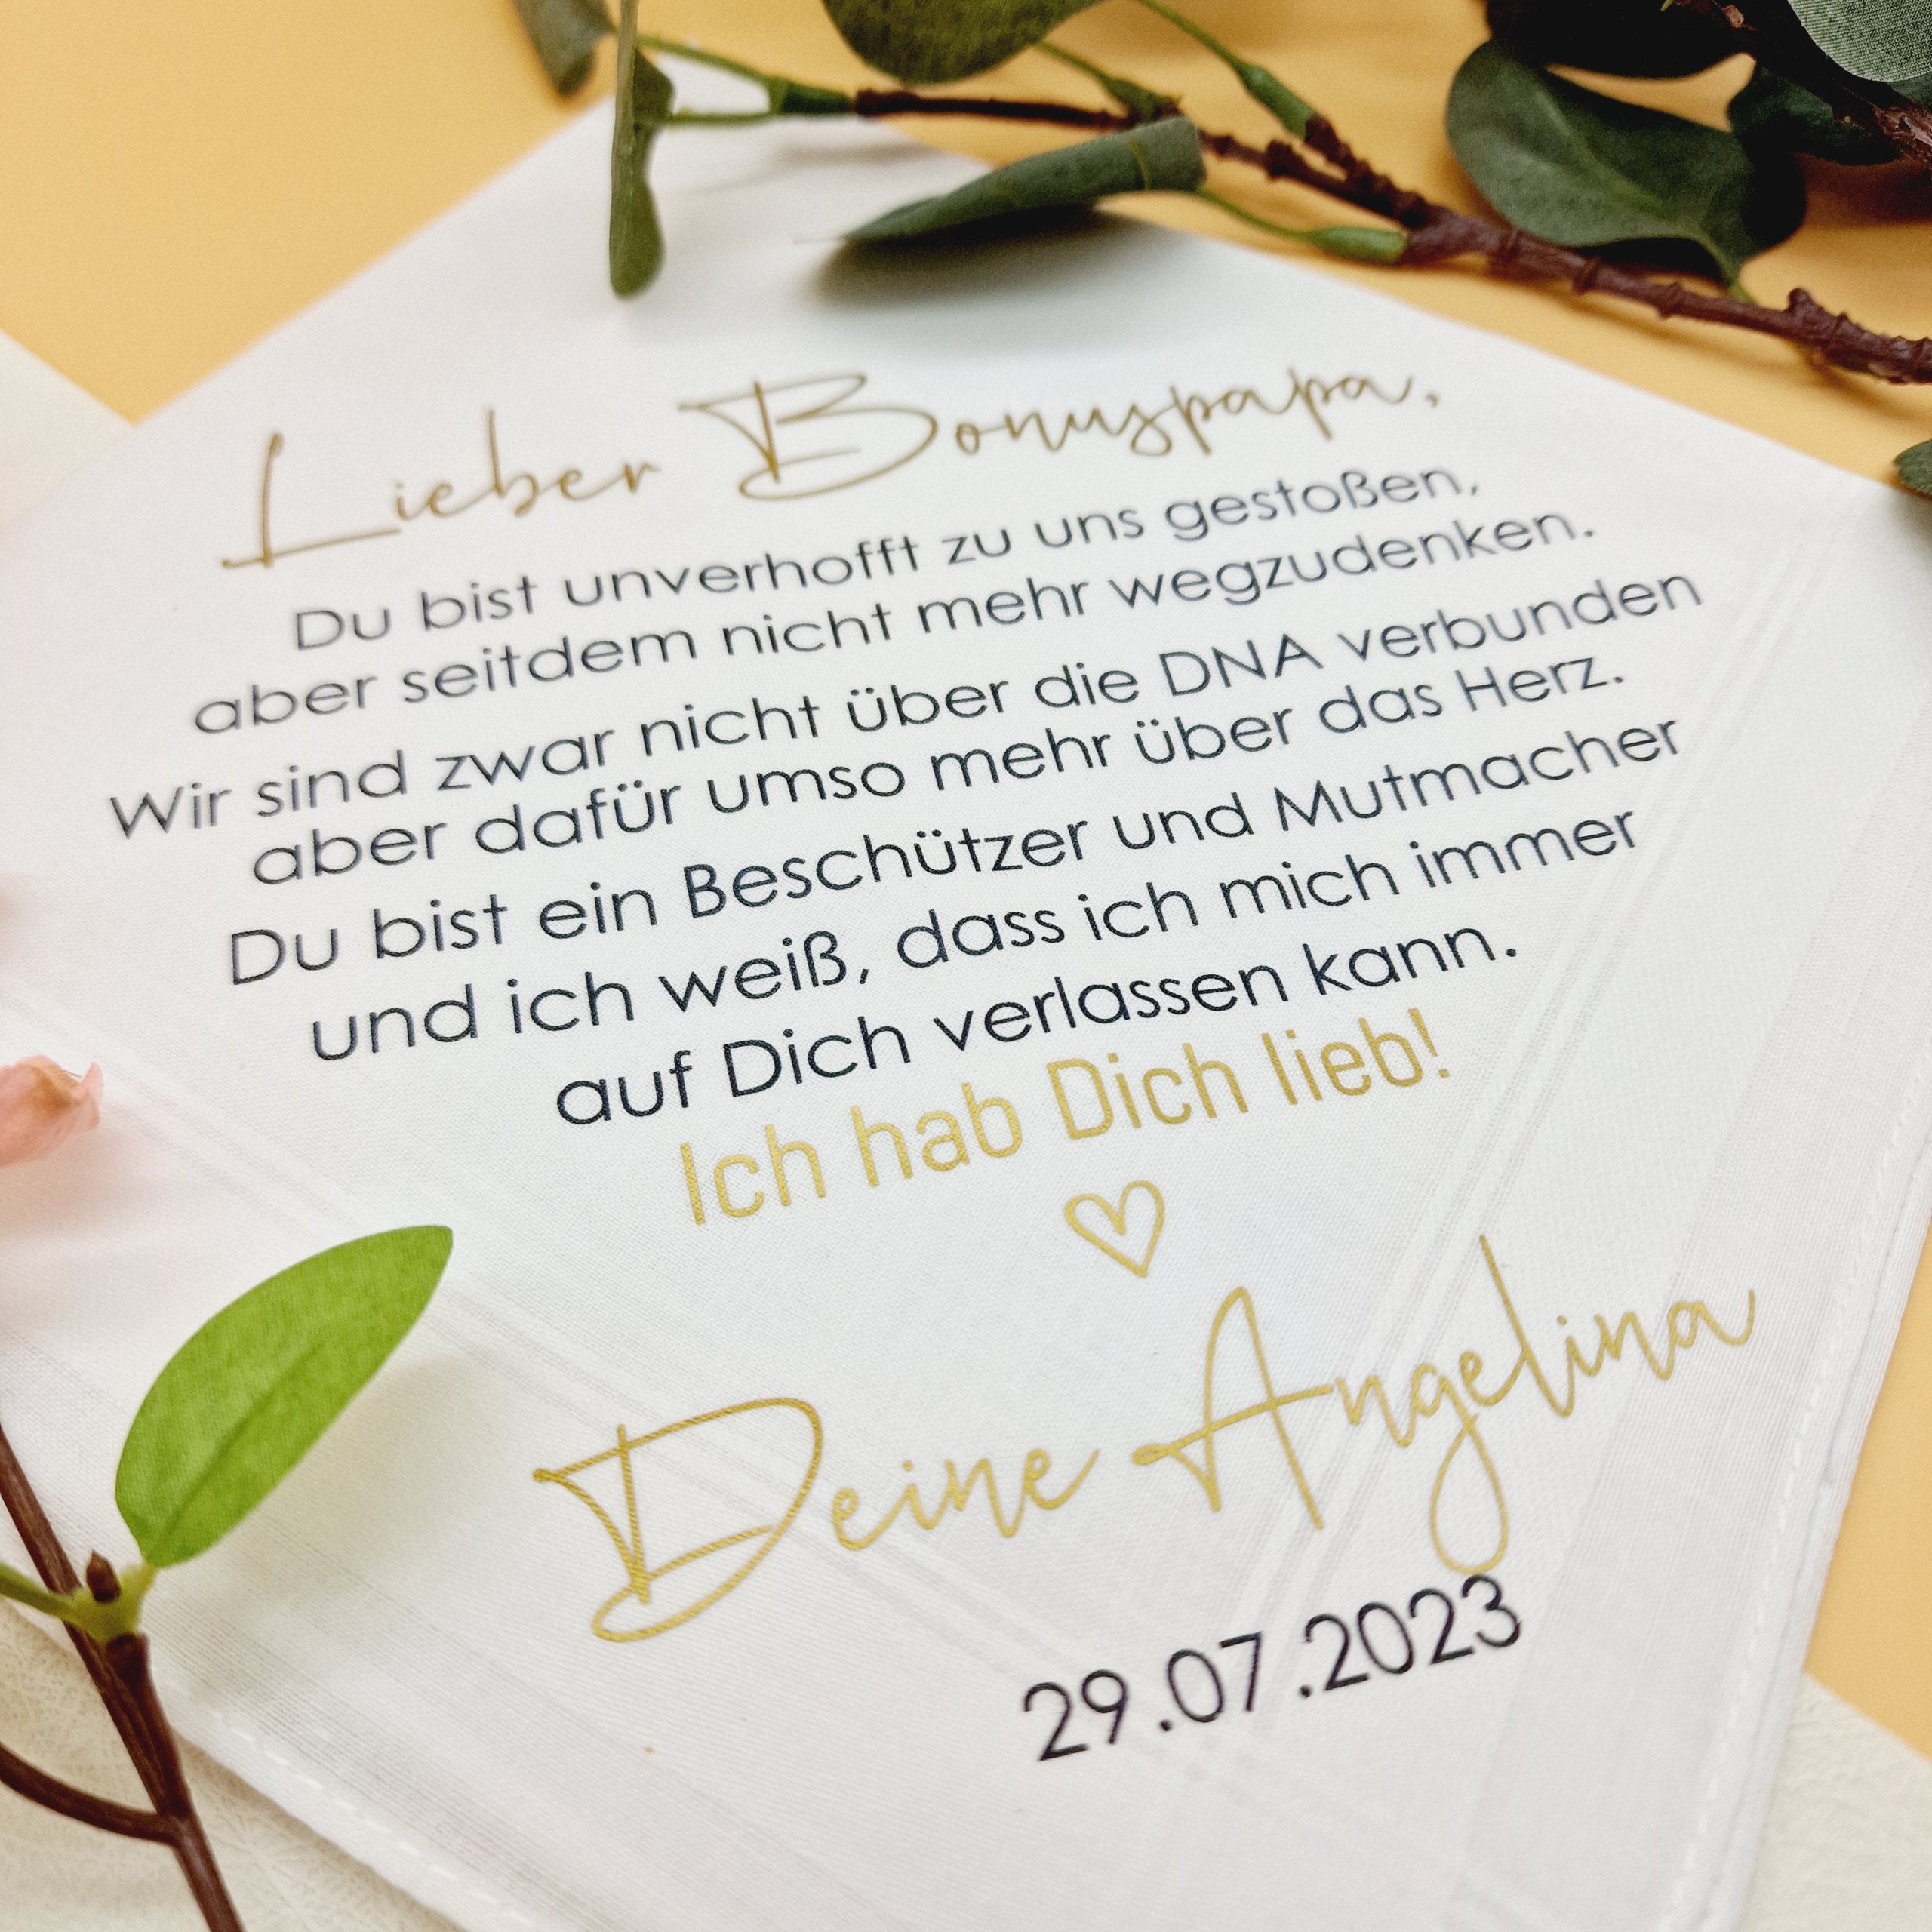 Lieber Bonuspapa,
Du bist unverhofft zu uns gestoßen,
aber seitdem nicht mehr wegzudenken.
Wir sind zwar nicht über die DNA verbunden
aber dafür umso mehr über das Herz.
Du bist ein Beschützer und Mutmacher
und ich weiß, dass ich mich immer
auf Dich verlassen kann.
Ich hab Dich lieb!
Deine Angelina
29.07.2023